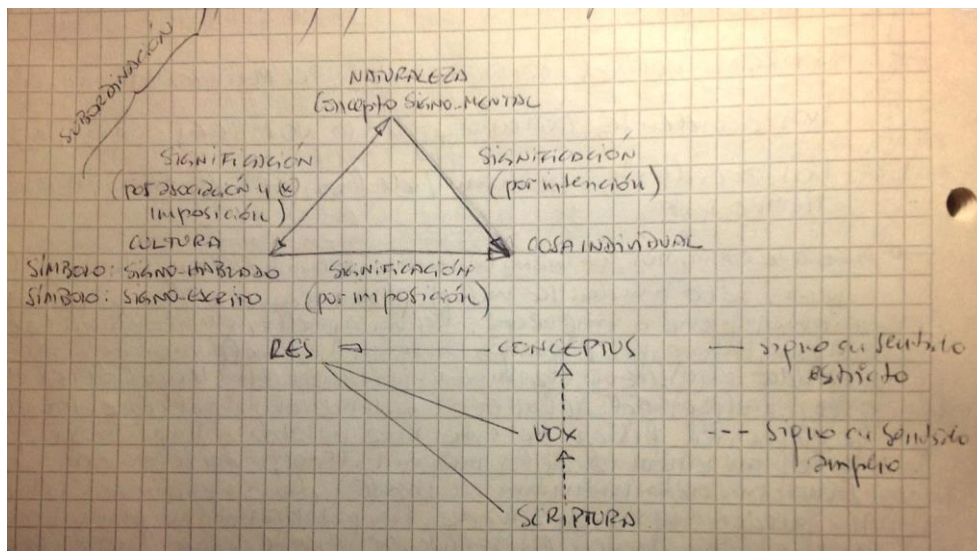 SUBORDINACIÓN
NATURALEZA
Concepto SIGNO-MENTAL
SIGNIFICACIÓN
(por asociación y
imposición)
SIGNIFICACIÓN
(por intención)
CULTURA
COSA INDIVIDUAL
SÍMBOLO: SIGNO-HABLADO
SÍMBOLO: SIGNO-ESCRITO
SIGNIFICACIÓN
(por imposición)
RES
CONCEPTUS
— signo en sentido
estricto
VOX
--- signo en sentido
amplio
SCRIPTURA